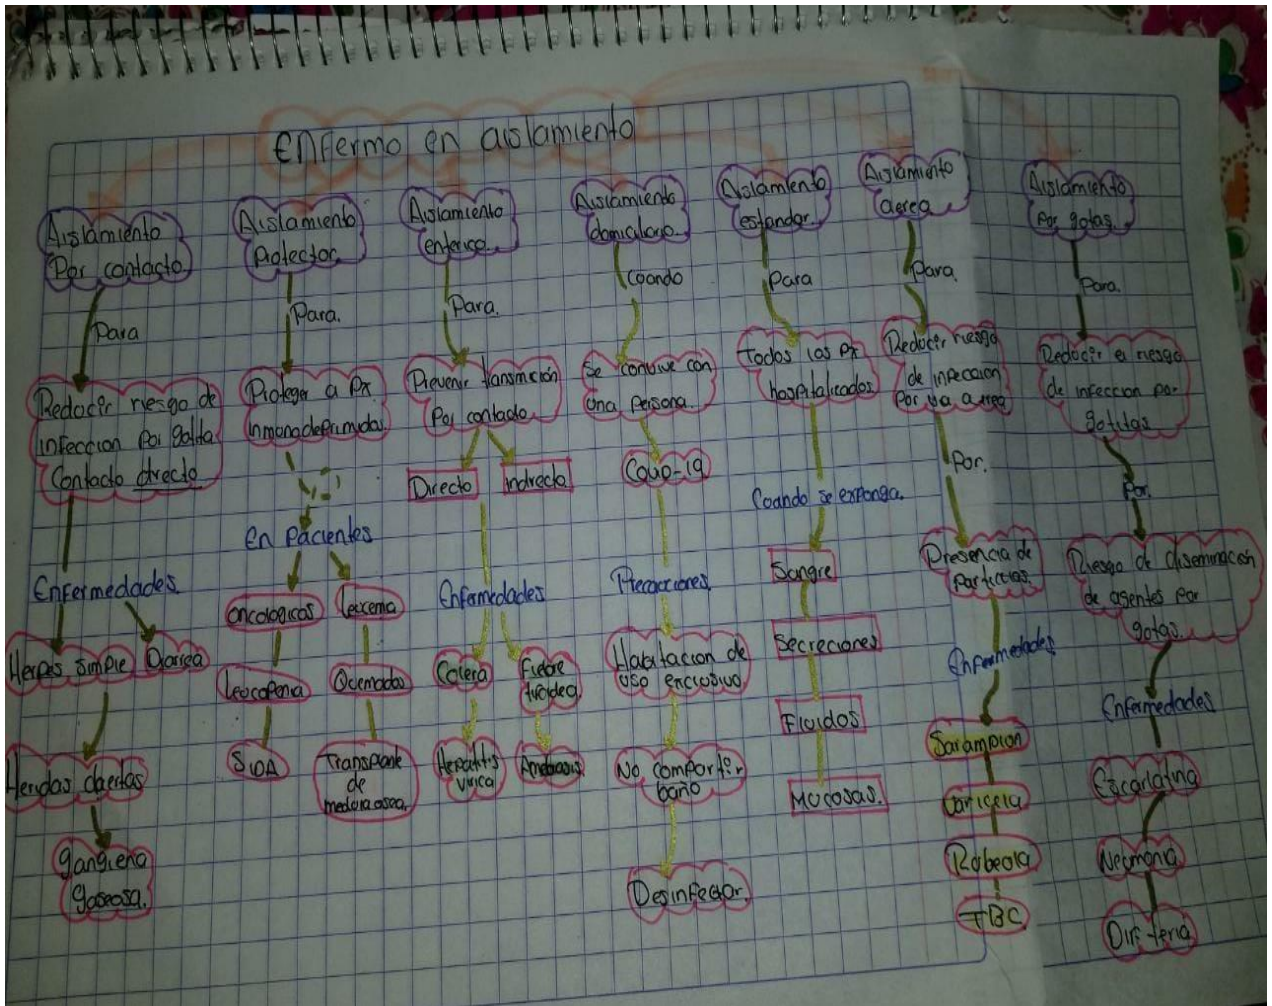 Enfermo en aislamiento
Aislamiento
Por contacto
Para
Reducir riesgo de
infeccion Por
Contacto directo
Enfermedades.
Herpes simple
Diarrea
Heridas abiertas
gangrena
gaseosa.
Aislamiento
Protector
Para.
Proteger a Px
inmunodeprimidos.
En Pacientes
oncologicos
Leucopenia
SIDA
Quemados
Transplante
de
medula osea.
Aislamiento
enterico.
Para.
Prevenir
Por contacto.
Directo
Indirecto
Enfermedades
Colera
Hepatitis
virica
Fiebre
Amebiasis
Aislamiento
domiciliario.
Cuando
Se convive con
Una persona.
Covid-19
Precauciones.
Habitacion de
uso exclusivo
No compartir
baño
Desinfectar.
Aislamiento
estandar.
Para
Todos los Px
hospitalizados
Cuando se exponga.
Sangre
Secreciones
Fluidos
Mucosas.
Aislamiento
aerea.
Para
Reducir riesgo
de infeccion
Por via aerea
Por.
Presencia de
Particulas.
Enfermedades
Sarampion
Varicela
Rubeola
TBC
Aislamiento
Por gotas.
Para.
Reducir el riesgo
de infeccion por
gotitas.
Por.
Riesgo de diseminacion
de agentes por
gotas.
Enfermedades
Escarlatina
Neumonia
Difteria